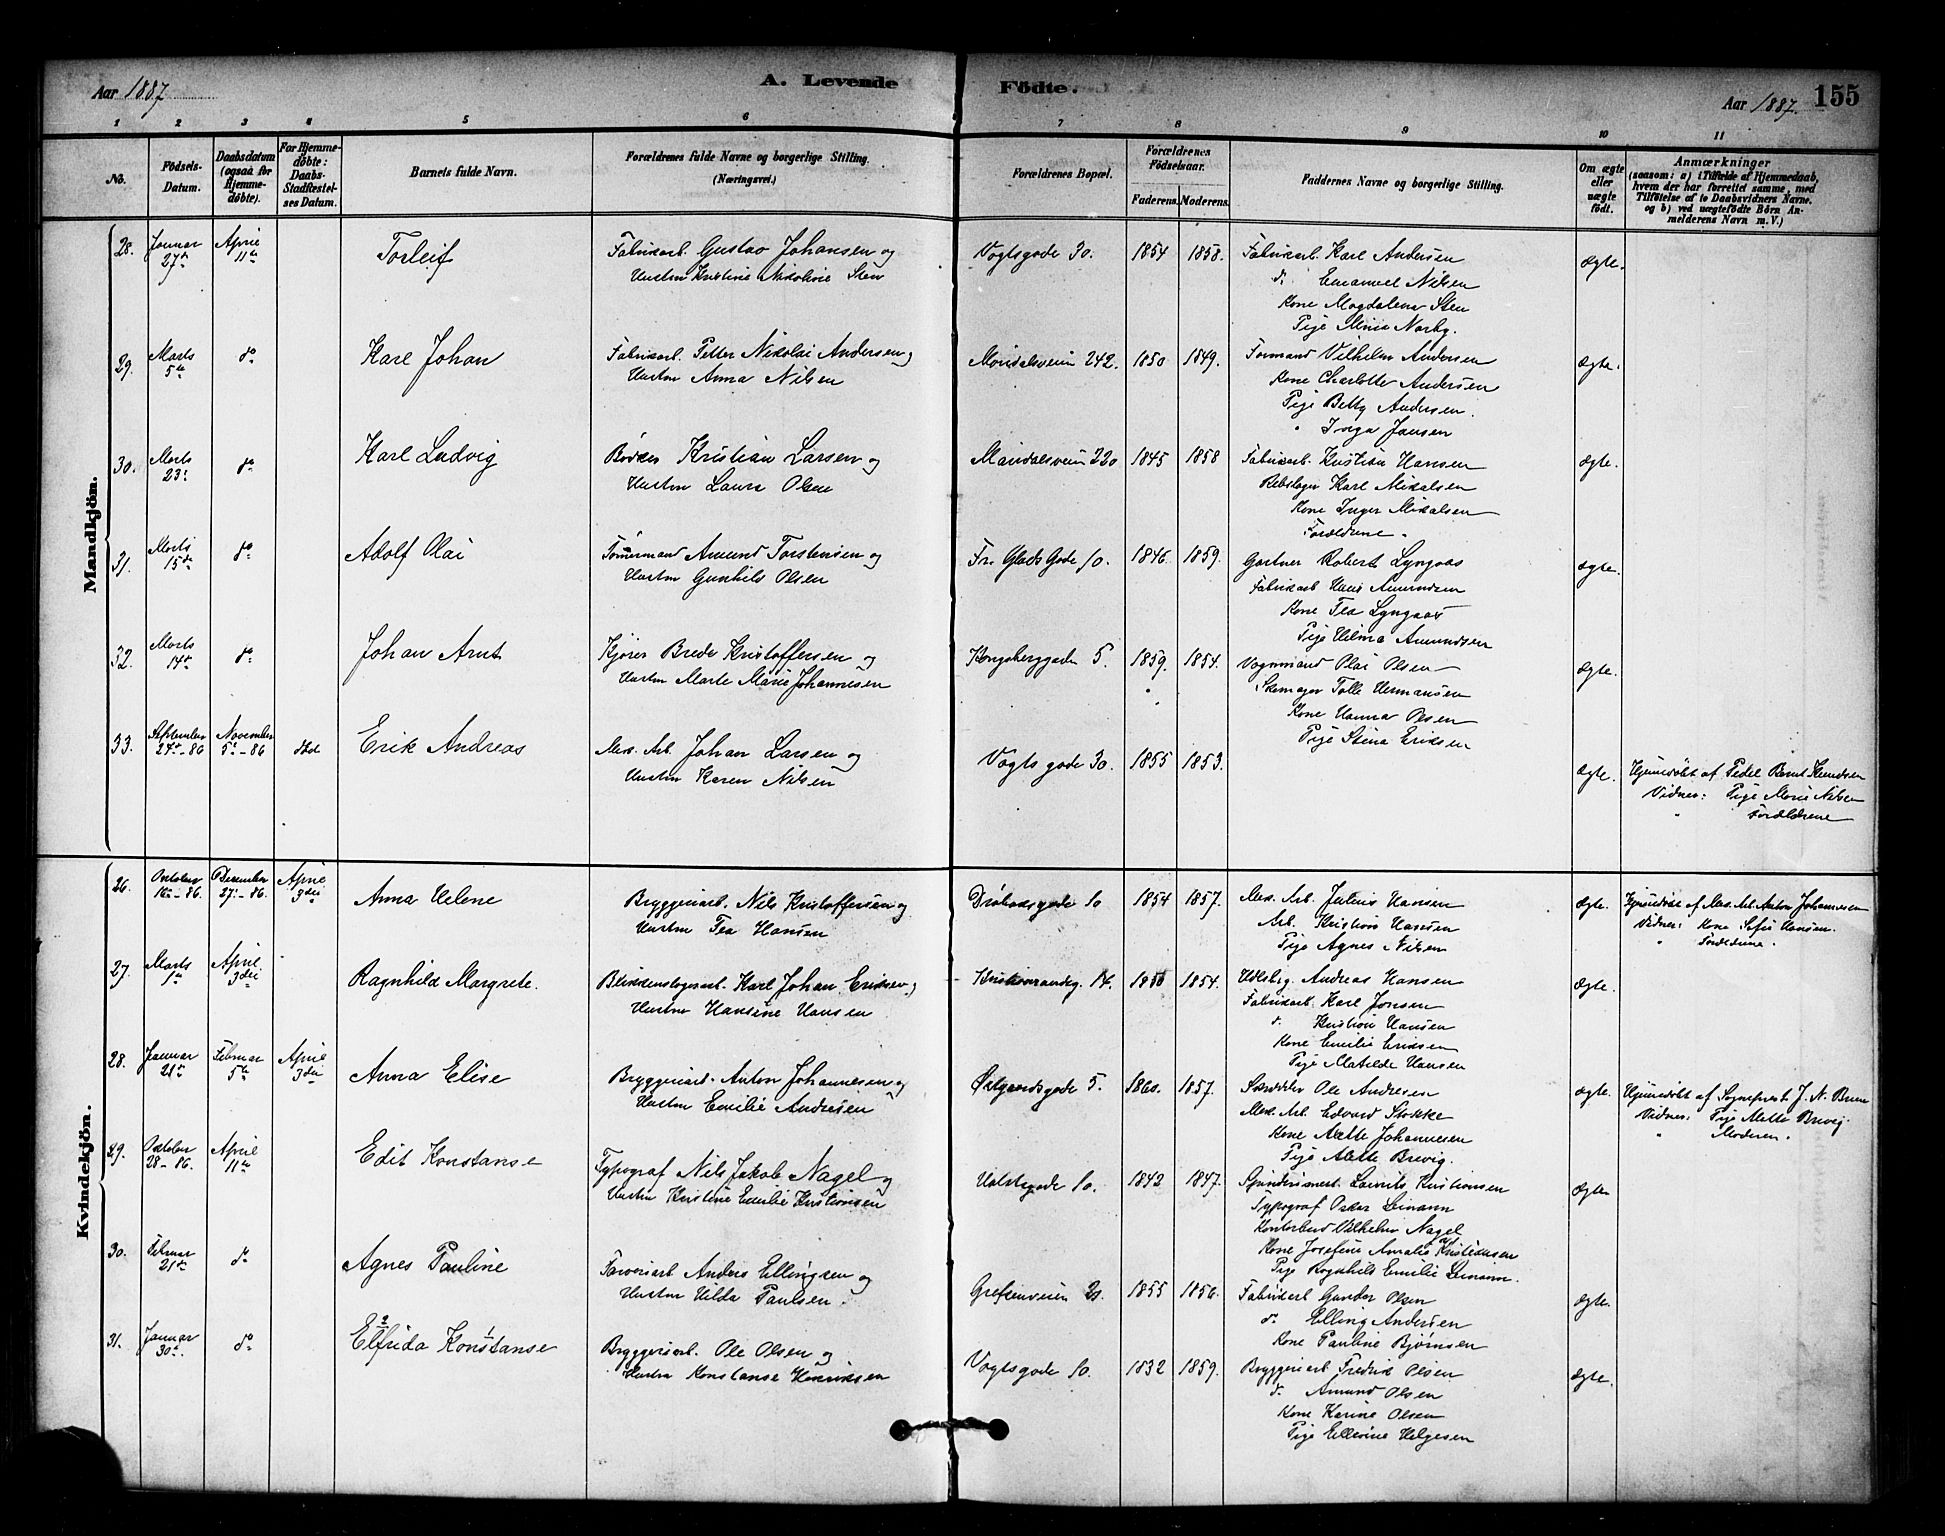 Aar 1887.
A. Levende
Födte.
Aar 1887.
155
1 2 3 4 5 6 7 8 9 10 11
No.
Födsels-Datum.
Daabsdatum (ogsaa for Hjemmedöbte).
For Hjemmedöbte: Daabs-Stadfæstelses Datum.
Barnets fulde Navn.
Forældrenes fulde Navne og borgerlige Stilling.
(Næringsvei.)
Forældrenes Bopæl.
Forældrenes Födselsaar.
Faderens. Moderens.
Faddernes Navne og borgerlige Stilling.
Om ægte eller uægte födt.
Anmærkninger
(saasom: a) i Tilfælde af Hjemmedaab,
hvem der har forrettet samme, med
Tilföielse af to Daabsvidners Navne.
og b) ved uægtefödte Börn An-
melderens Navn m. V.)
Mandkjön.
28. Januar 27de April 11te Torleif
Fabrikarb. Gustav Johansen og
Hustru Kristine Nikoline Sten
Vogtsgade 30. 1854 1858.
Fabrikarb. Karl Andersen
d. Emanuel Nilsen
Kone Magdalena Sten
Pige Mina Norby.
ægte.
29. Marts 5te do Karl Johan
Fabrikarb. Petter Nikolai Andersen og
Hustru Anna Nilsen
Maridalsveien 242. 1850 1849.
Formand Vilhelm Andersen
Kone Charlotte Andersen
Pige Betty Andersen.
" Inga Jansen
ægte.
30. Marts 23. do Karl Ludvig
Bödker Kristian Larsen og
Hustru Laura Olsen
Maridalsveien 220 1845 1858
Fabrikarb. Kristian Hansen
Rebslager Karl Mikalsen
Kone Inger Mikalsen
Forældrene.
ægte.
31. Marts 15de do Adolf Olai
Tömmermand Amund Torstensen og
Hustru Gunhild Olsen
Fr. Glads Gade 10. 1846. 1859.
Gartner Robert Lyngaas
Fabrikarb Hans Amundsen
Kone Tea Lyngaas
Pige Hilma Amundsen
ægte.
32. Marts 14de do Johan Arnt
Kjörer Brede Kristoffersen og
Hustru Marte Marie Johannesen
Kongsberggaden 5. 1859. 1854.
Vognmand Olai Olsen
Skomager Tolle Hermansen
Kone Hanna Olsen
Pige Stina Eriksen
ægte.
33. September 24de-86 November 5te-86 död Erik Andreas
Mek. Arb. Johan Larsen og
Hustru Karen Nilsen
Vogts gade 30. 1855 1853.
ægte.
Hjemmedöbt af Pedel Bernt Knudsen
Vidner: Pige Marie Nilsen
" Forældrene
Kvindekjön.
26. Oktober 16de-86. December 27.-86. April 3die Anna Helene
Bryggeriarb. Nils Kristoffersen og
Hustru Tea Hansen
Dröbaksgade 10 1854 1857.
Mek. Arb. Julius Hansen
Arb. Kristian Hansen
Pige Agnes Nilsen
ægte.
Hjemmedöbt af Mek. Arb. Anton Johannesen
Vidner: Kone Sofie Hansen.
" Forældrene.
27. Marts 1ste April 3die Ragnhild Margrete.
Blikkenslagerarb. Karl Johan Eriksen og
Hustru Hansine Hansen
Kristiansandsg. 14. 1854.
Andreas Hansen
Fabrikarb. Karl Jonsen
d. Kristian Hansen
Kone Emilie Eriksen
Pige Matilde Hansen
ægte.
28. Januar 21de Februar 5te April 3die Anna Elise
Bryggeriarb. Anton Johannesen og
Hustru Emilie Andresen
Östgaardsgade 5. 1860. 1857.
Skrædder Ole Andresen
Mek. Arb. Edvard Stokke
Kone Alette Johannesen
Pige Alette Brevig.
ægte.
Hjemmedöbt af Sogneprest J. N. Brun
Vidner: Pige Alette Brevig.
" Moderen.
29. Oktober 28-86. April 11te Edit Konstanse
Typograf Nils Jakob Nagel og
Hustru Kristine Emilie Kristiansen
Holstsgade 10. 1842 1847.
Laurits Kristiansen
Typograf Oskar Leinann
Kontorbud Vilhelm Nagel
Kone Josefine Amalie Kristiansen
Pige Ragnhild Emilie Leinann.
ægte
30. Februar 21de do Agnes Pauline
Farveriarb Anders Ellingsen og
Hustru Hilda Paulsen.
Grefsenveien 21. 1855 1856.
Fabrikarb Gunder Olsen
do Elling Andersen
Kone Pauline Bjørnsen
ægte.
31. Januar 30te do Elfrida Konstanse
Bryggeriarb. Ole Olsen og
Hustru Konstanse Henriksen
Vogtsgade 10. 1832 1859.
Bryggeriarb Fredrik Olsen
d. Amund Olsen
Kone Karine Olsen
Pige Ellevine Helgesen
ægte.